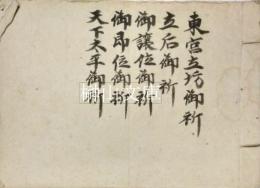 東宮立坊御祈
立后御祈
御譲位御祈
御即位御祈
天下太平御祈